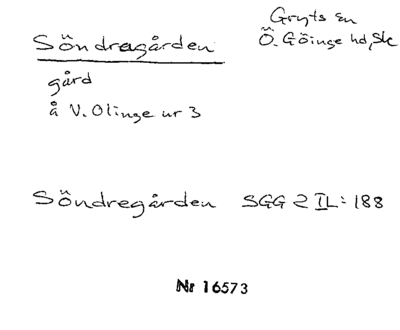 Söndregården
Gryts sn
Ö. Göinge hd, Sk
gård
å V. Olinge nr 3
Söndregården SGG 2 II: 188
Nr 16573